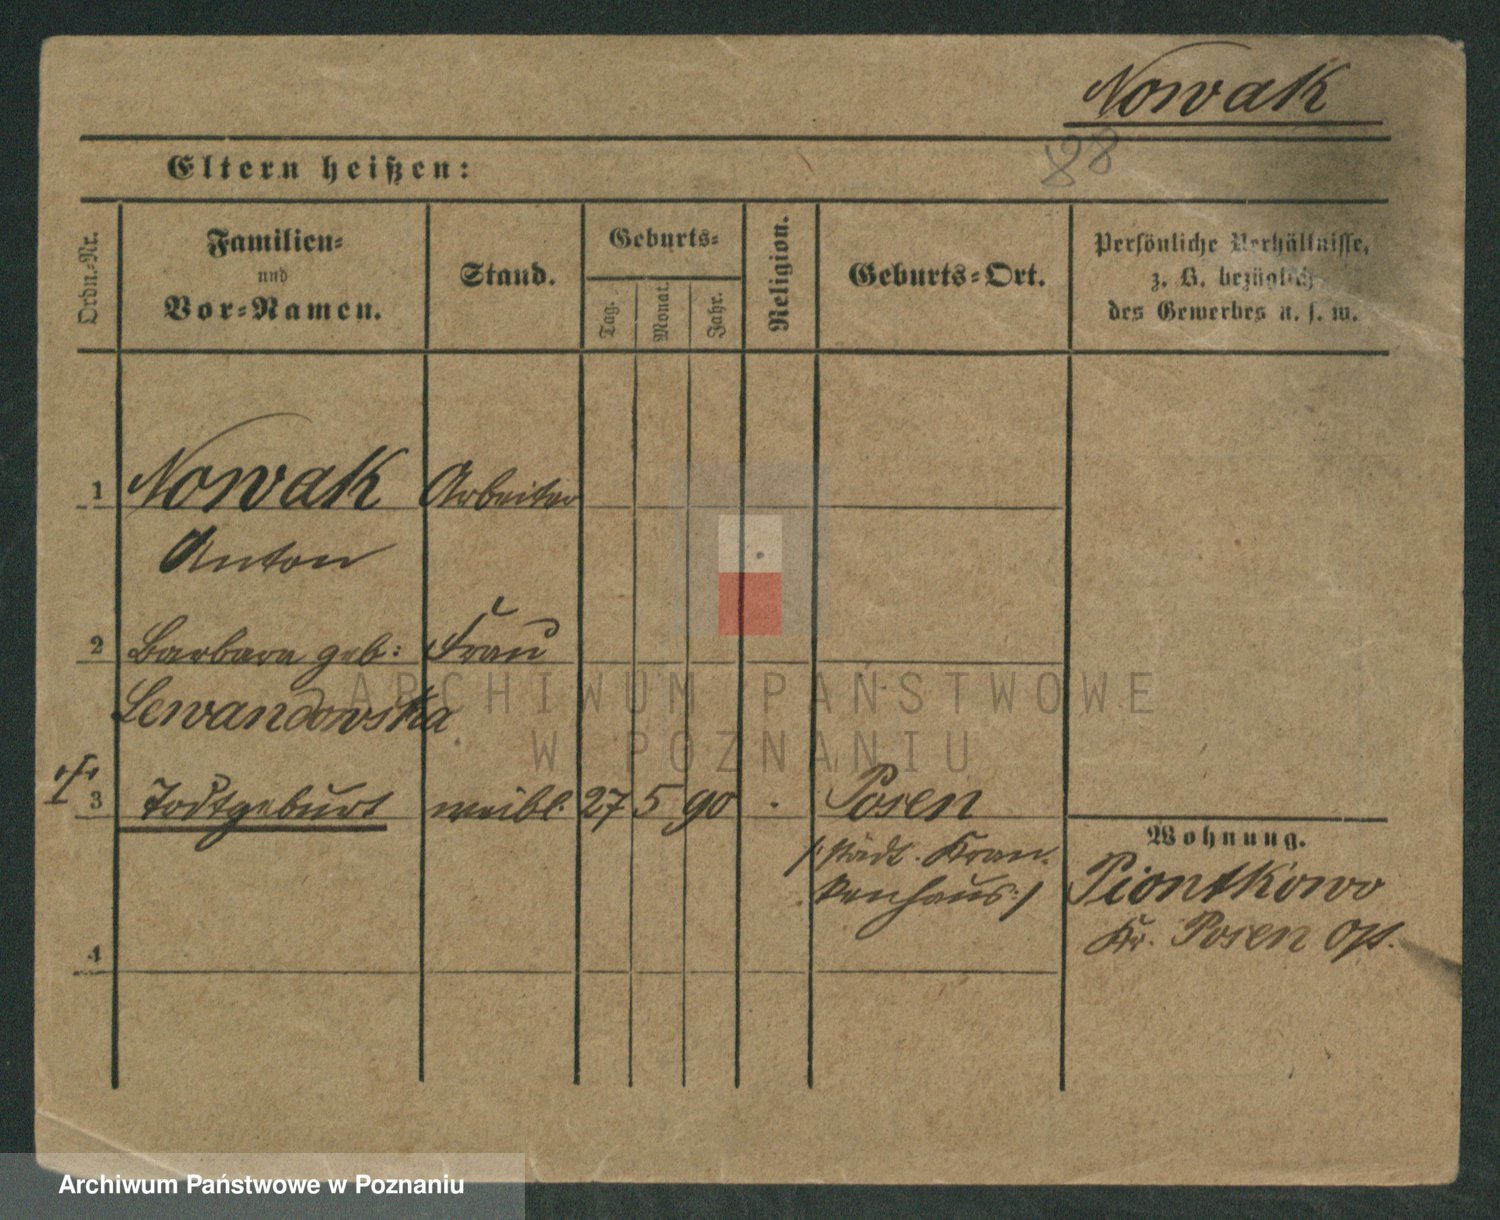 Nowak
88
Eltern heißen:
Ordn.-Nr.
Familien-
und
Vor-Namen.
Stand.
Geburts-
Tag.
Monat.
Jahr.
Religion.
Geburts-Ort.
Persönliche Verhältnisse,
z. B. bezüglich
des Gewerbes u. s. w.
1 Nowak Arbeiter
Anton
2 Barbara geb: Frau
Lewandowska
3 Todtgeburt weibl. 27 5 90 Posen
/: städt. Kran-
kenhaus :/
Wohnung.
Piontkowo
Kr. Posen Ost.
4
ARCHIWUM PAŃSTWOWE
W POZNANIU
Archiwum Państwowe w Poznaniu